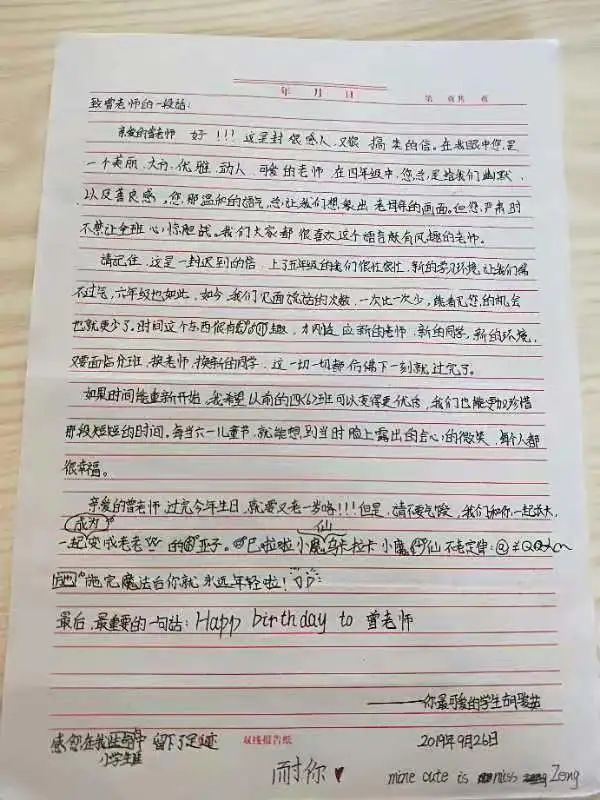 年 月 日
第 页 共 页
致曾老师的一段话:
亲爱的曾老师 好!!!这是封很感人又很搞笑的信。在我眼中您是
一个美丽、大方、优雅、动人、可爱的老师,在四年级中,您总是给我们幽默
以及善良感,您那温和的语气,总让我们想象出老母亲的画面。但您严肃时
不禁让全班心惊胆战。我们大家都很喜欢这个语言颇有风趣的老师。
请记住,这是一封迟到的信,上了五年级的我们很忙很忙,新的学习环境,让我们喘
不过气,六年级也如此,如今,我们见面说话的次数,一次比一次少,能看见您的机会
也就更少了。时间这个东西很有趣,才刚适应新的老师、新的同学,新的环境,
又要面临分班,换老师,换新的同学,这一切一切都仿佛下一刻就过完了。
如果时间能重新开始,我希望以前的四(6)班可以变得更优秀,我们也能更加珍惜
那段短短的时间。每当六一儿童节,就能想到当时脸上露出的会心的微笑,每个人都
很幸福。
亲爱的曾老师,过完今年生日,就要又老一岁咯!!!但是,请不要气馁,我们和你一起长大,
成为 仙
一起变成老老 的 亚子。巴啦啦小魔 乌卡拉卡 小魔 仙 不老定律:
施完魔法后你就永远年轻啦!
最后,最重要的一句话:Happ birthday to 曾老师
———你最可爱的学生
感您在我 中 留下了足迹
小学生涯
双线报告纸
2019年9月26日
耐你 ♥
mine cute is miss Zeng